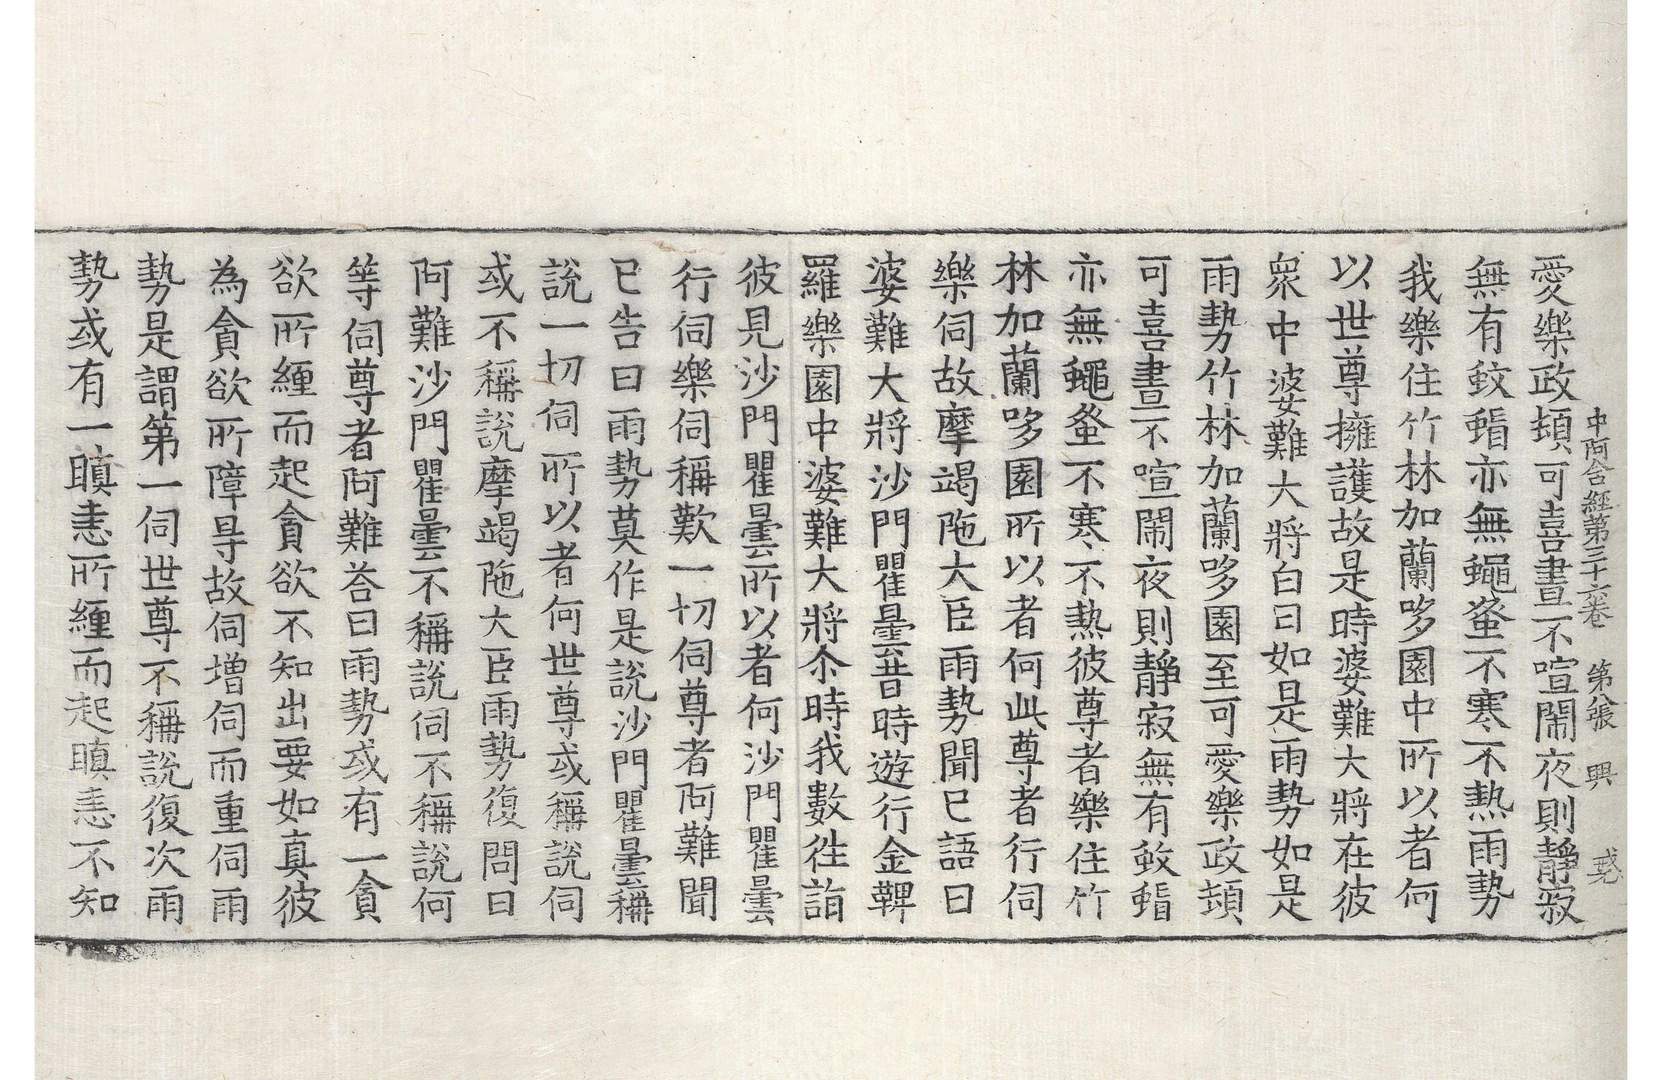 中阿含經第三十六卷　第八張　興
愛樂政頓可喜晝不喧鬧夜則靜寂
無有蚊䖟亦無蠅蚤不寒不熱雨勢
我樂住竹林加蘭哆園中所以者何
以世尊擁護故是時婆難大將在彼
衆中婆難大將白曰如是雨勢如是
雨勢竹林加蘭哆園至可愛樂政頓
可喜晝不喧鬧夜則靜寂無有蚊䖟
亦無蠅蚤不寒不熱彼尊者樂住竹
林加蘭哆園所以者何此尊者行伺
樂伺故摩竭陁大臣雨勢聞已語曰
婆難大將沙門瞿曇昔時遊行金鞞
羅樂園中婆難大將尒時我數往詣
彼見沙門瞿曇所以者何沙門瞿曇
行伺樂伺稱歎一切伺尊者阿難聞
已告曰雨勢莫作是說沙門瞿曇稱
說一切伺所以者何世尊或稱說伺
或不稱說摩竭陁大臣雨勢復問曰
阿難沙門瞿曇不稱說伺不稱說何
等伺尊者阿難荅曰雨勢或有一貪
欲所纏而起貪欲不知出要如真彼
為貪欲所障㝵故伺增伺而重伺雨
勢是謂第一伺世尊不稱說復次雨
勢或有一瞋恚所纏而起瞋恚不知